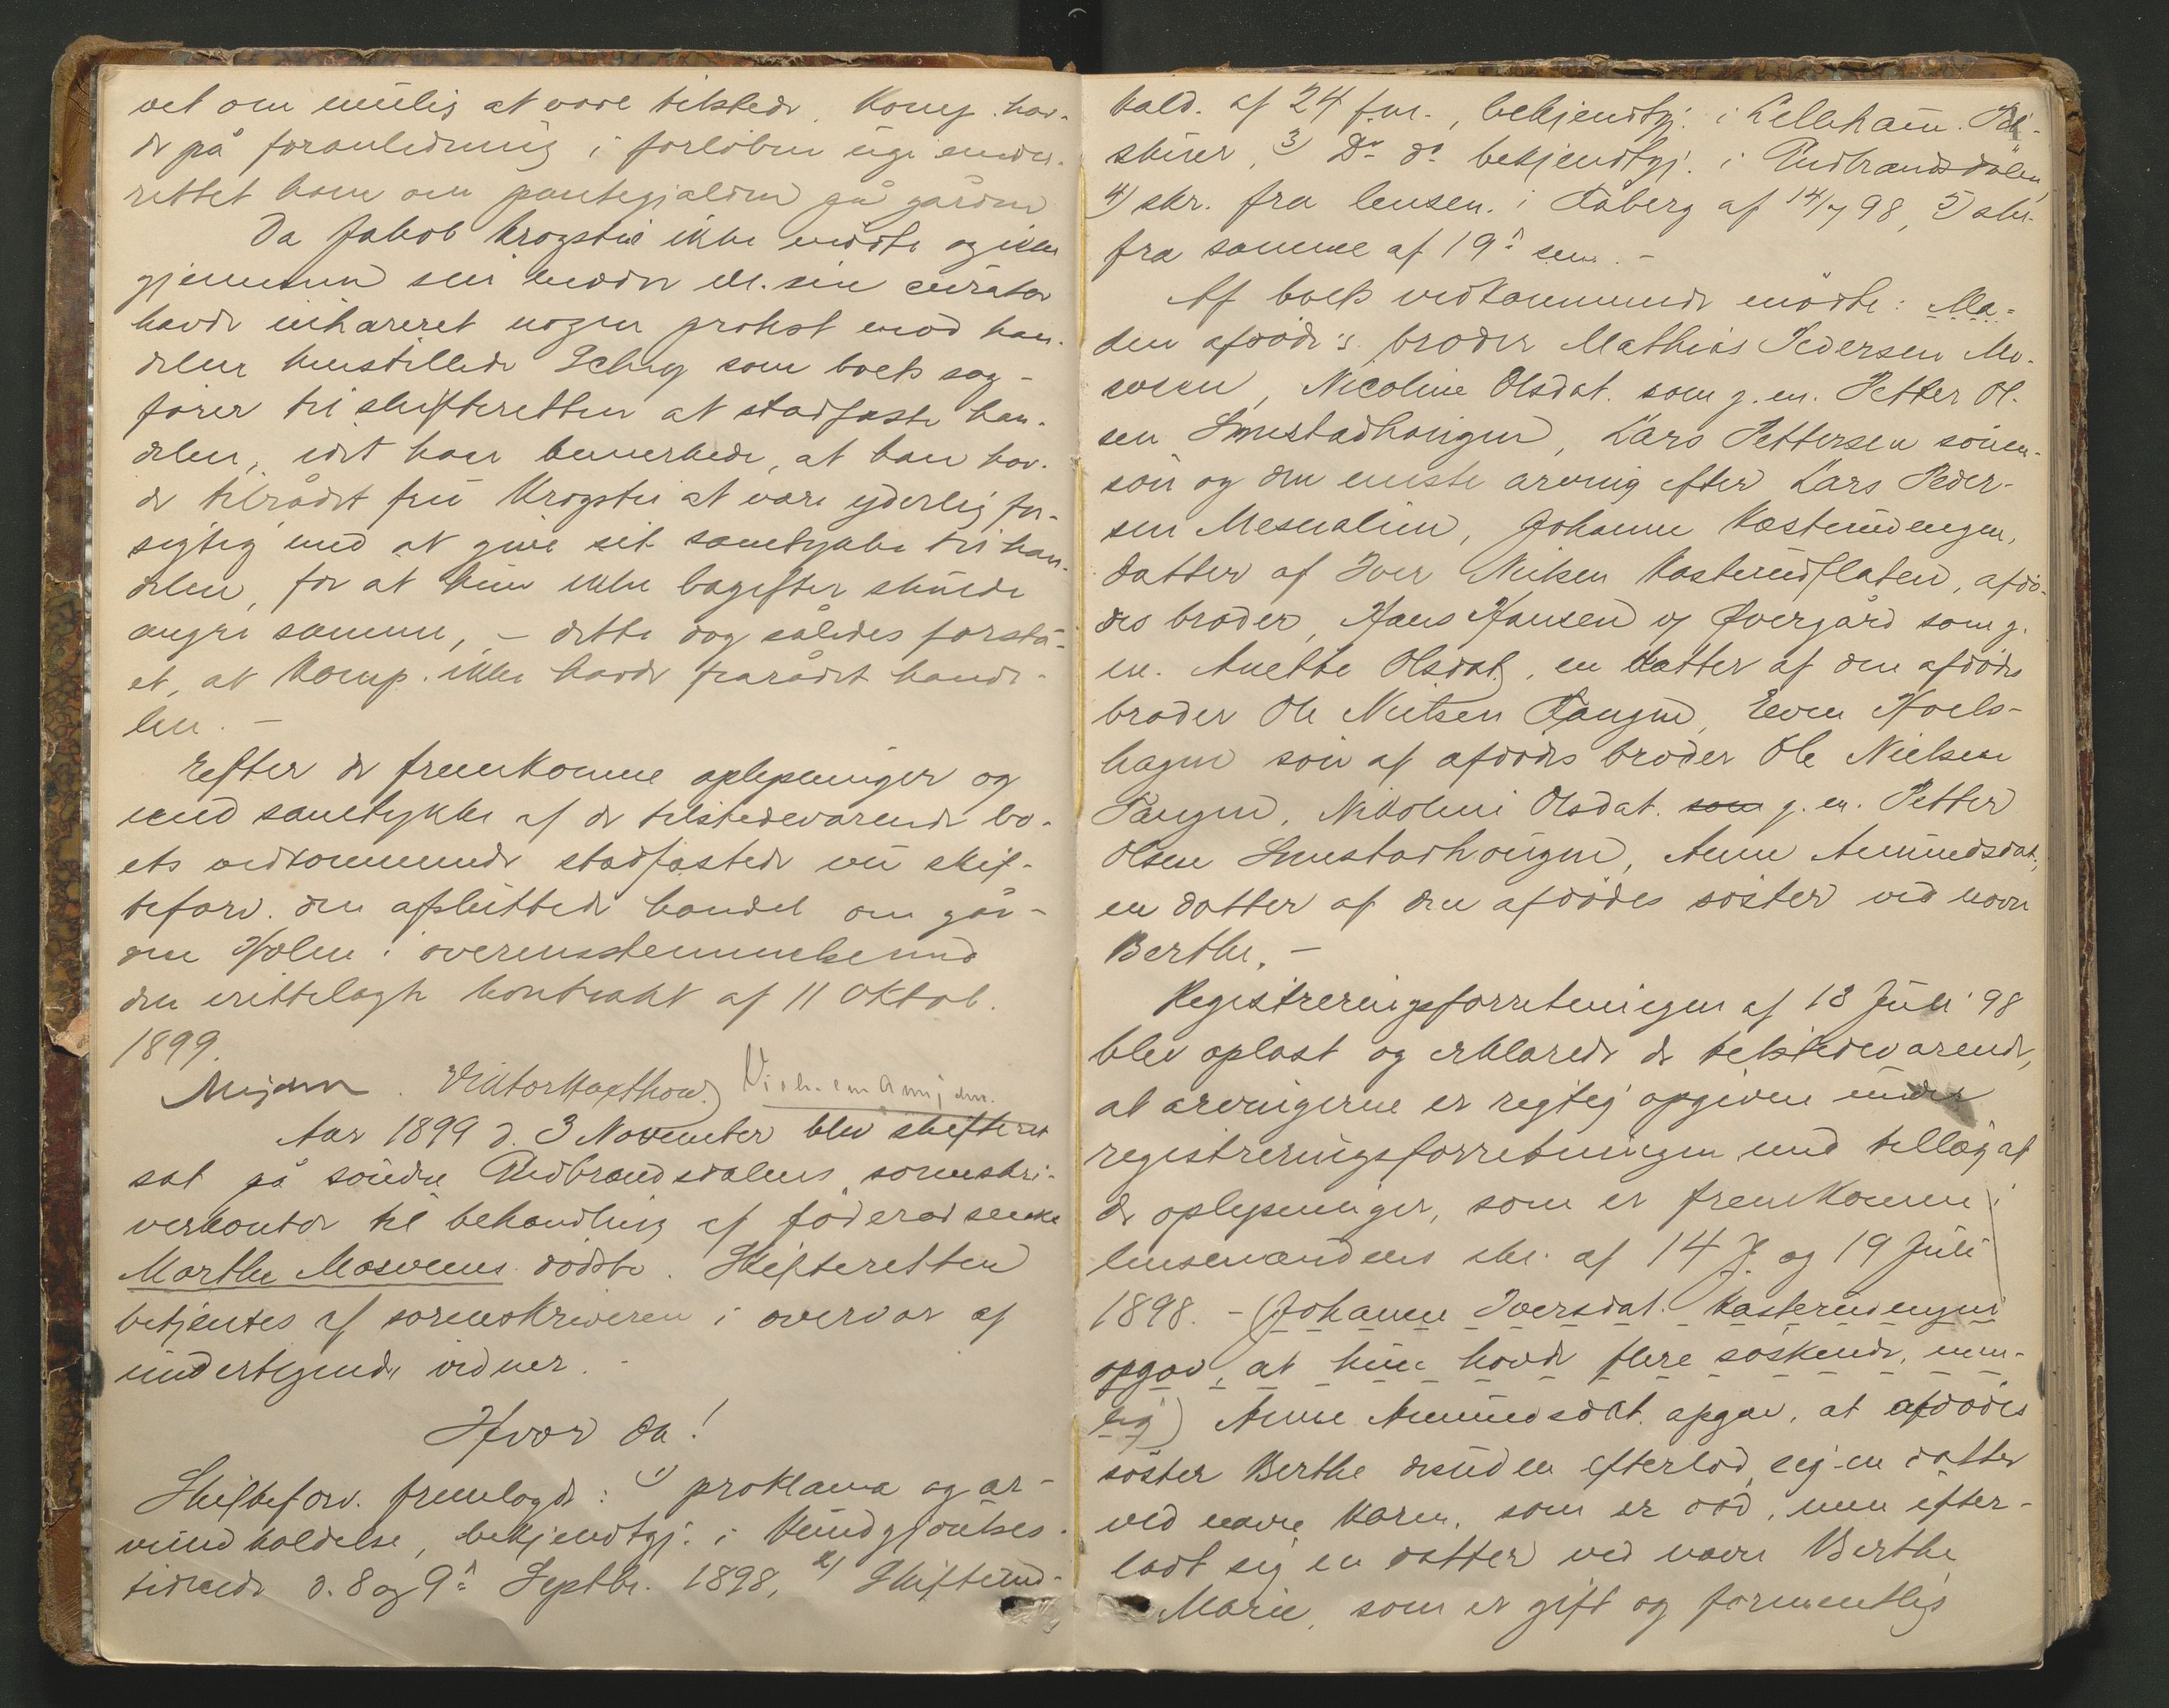 vet om mulig at være tilstede. Komp. hav-
de på foranledning i forløben uge under-
rettet ham om pantegjælden på gården
Da Jakob Krogstie ikke mødte og ikke
gjennem sin moder ell. sin curator
havde inhæreret nogen protest mod han-
delen henstillede som boets sag-
fører til skifteretten at stadfæste han-
delen, idet han bemerkede, at han hav-
de tilrådet fru Krogstie at være yderlig for-
sigtig med at give sit samtykke til han-
delen, for at hun ikke bagefter skulde
angre samme, – dette dog således forstå-
et, at Komp. ikke havde frarådet hande-
len. –
Efter de fremkomne oplysninger og
med samtykke af de tilstedeværende bo-
ets vedkommende stadfæstede nu skif-
teforv. den afsluttede handel om går-
den Holen i overensstemmelse med
den irettelagte kontrakt af 11 Oktob.
1899.
Mejdell. Viktor Haxthow.
Aar 1899 d. 3 November blev skifteret
sat på søndre Gudbrandsdalens sorenskri-
verkontor til behandling af føderådsenke
Marthe Mosveens dødsbo. Skifteretten
betjentes af sorenskriveren i overvær af
undertegnede vidner. –
Hvor da!
Skifteforv. fremlagde: 1) proklama og ar-
veindkaldelse, bekjendtgj. i Kundgjørelses-
tidende d. 8 og 9de Septbr. 1898, 2) Skifteind-
kald. af 24 f.m., bekjendtgj. i Lilleham. Til-
skuer, 3) Do do bekjendtgj. i Gudbrandsdølen,
4) skr. fra lensm. i Fåberg af 14/7 98, 5) skr.
fra samme af 19de sm. –
Af boets vedkommende mødte: Ma=
den afdøde's broder Mathias Pedersen Mo-
sveen, Nicoline Olsdat. som g. m. Petter Ol-
sen Smestadhaugen, Lars Pettersen sønne-
søn og den eneste arving efter Lars Peder-
sen Mesnalien, Johanne Kasterudengen,
datter af Iver Nielsen Kasterudflaten, afdø-
des broder, Hans Hansen Øvergård som g.
m. Anethe Olsdat., en datter af den afdødes
broder Ole Nielsen Tangen, Even Hoels-
hagen søn af afdødes broder Ole Nielsen
Tangen, Nikoline Olsdat. som g. m. Petter
Olsen Smestadhaugen, Anne Amundsdat.,
en datter af den afdødes søster ved navn
Berthe. –
Registreringsforretningen af 13 Juli 98
blev oplæst og erklærede de tilstedeværende,
at arvingerne er rigtig opgivne under
registreringsforretningen med tillæg af
de oplysninger, som er fremkommen i
lensmandens skr. af 14 J. og 19 Juli
1898. – (Johanne Iversdat. Kasterudengen
opgav, at hun havde flere søskende, nem-
lig) Anne Amundsdat. opgav, at afdødes
søster Berthe desuden efterlod sig en datter
ved navn Karen, som er død, men efter-
ladt sig en datter ved navn Berthe
Marie, som er gift og formentlig